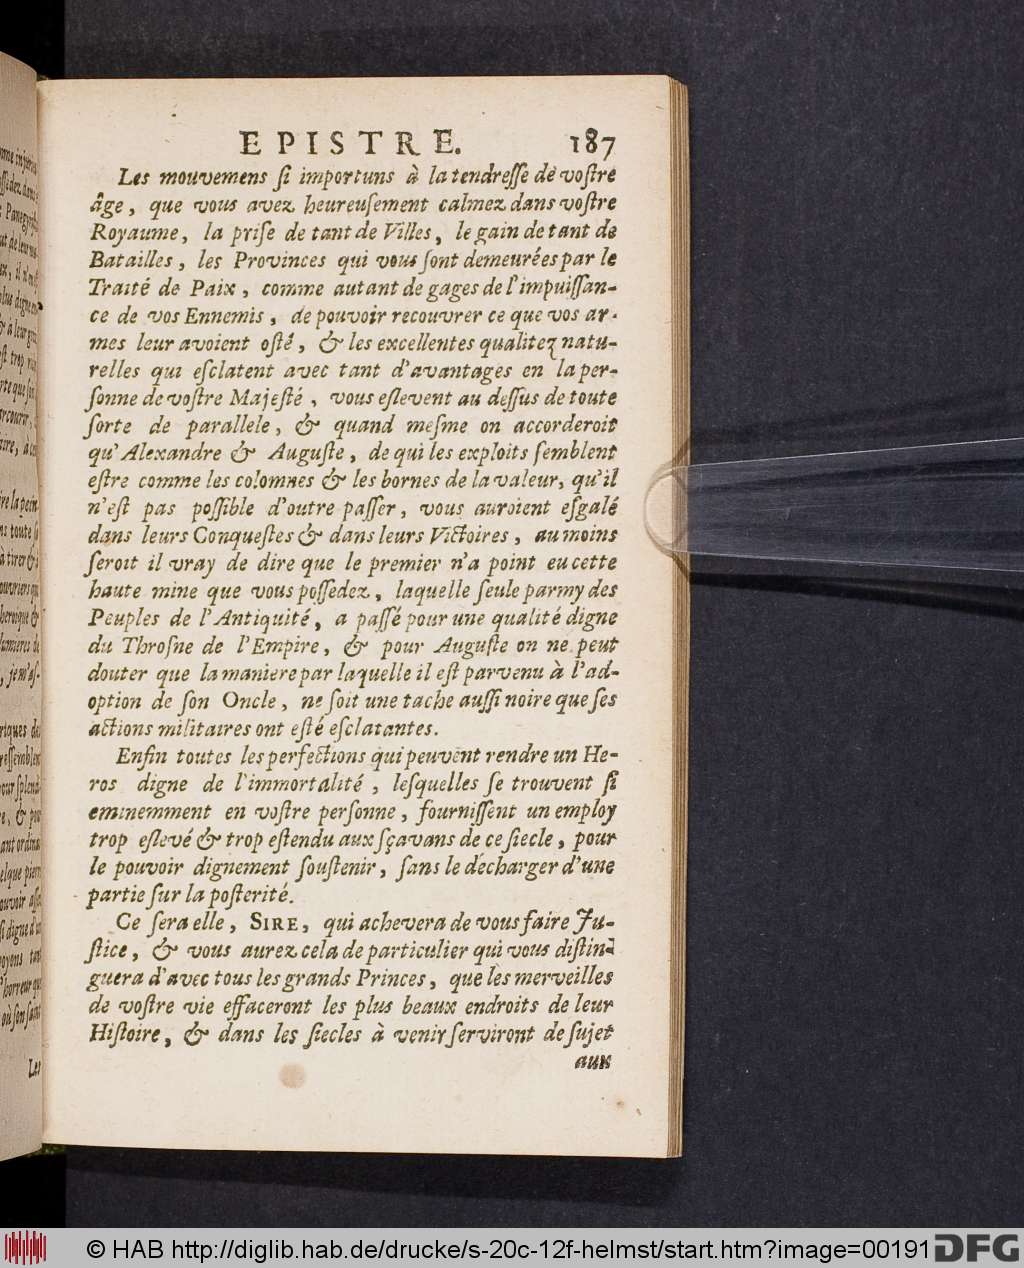 EPISTRE. 187
Les mouvemens ſi importuns à la tendreſſe de voſtre
âge, que vous avez heureuſement calmez dans voſtre
Royaume, la priſe de tant de Villes, le gain de tant de
Batailles, les Provinces qui vous ſont demeurées par le
Traité de Paix, comme autant de gages de l'impuiſſan-
ce de vos Ennemis, de pouvoir recouvrer ce que vos ar-
mes leur avoient oſté, & les excellentes qualitez natu-
relles qui eſclatent avec tant d'avantages en la per-
ſonne de voſtre Majeſté, vous eſlevent au deſſus de toute
ſorte de parallele, & quand meſme on accorderoit
qu'Alexandre & Auguſte, de qui les exploits ſemblent
eſtre comme les colomnes & les bornes de la valeur, qu'il
n'eſt pas poſſible d'outre paſſer, vous auroient eſgalé
dans leurs Conqueſtes & dans leurs Victoires, au moins
ſeroit il vray de dire que le premier n'a point eu cette
haute mine que vous poſſedez, laquelle ſeule parmy des
Peuples de l'Antiquité, a paſſé pour une qualité digne
du Throſne de l'Empire, & pour Auguſte on ne peut
douter que la maniere par laquelle il eſt parvenu à l'ad-
option de ſon Oncle, ne ſoit une tache auſſi noire que ſes
actions militaires ont eſté eſclatantes.
Enfin toutes les perfections qui peuvent rendre un He-
ros digne de l'immortalité, leſquelles ſe trouvent ſi
eminemment en voſtre perſonne, fourniſſent un employ
trop eſlevé & trop eſtendu aux ſçavans de ce ſiecle, pour
le pouvoir dignement ſouſtenir, ſans le décharger d'une
partie ſur la poſterité.
Ce ſera elle, SIRE, qui achevera de vous faire Ju-
ſtice, & vous aurez cela de particulier qui vous diſtin-
guera d'avec tous les grands Princes, que les merveilles
de voſtre vie effaceront les plus beaux endroits de leur
Hiſtoire, & dans les ſiecles à venir ſerviront de ſujet
aux
Les
© HAB http://diglib.hab.de/drucke/s-20c-12f-helmst/start.htm?image=00191
DFG